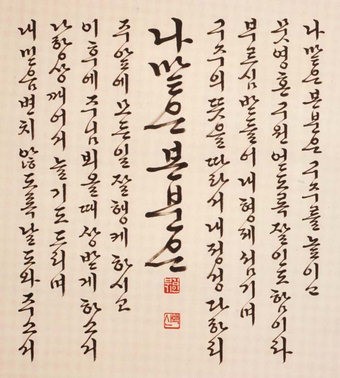 나 맡은 본분은 구주를 높이고
뭇 영혼 구원 얻도록 잘 인도함이라
부르심 받들어 내 형제 섬기며
구주의 뜻을 따라서 내 정성 다하리
나 맡은 본분은
주 앞에 모든 일 잘 행케 하시고
이 후에 주님 뵈올 때 상 받게 하소서
나 항상 깨어서 늘 기도드리며
내 믿음 변치 않도록 날 도와주소서